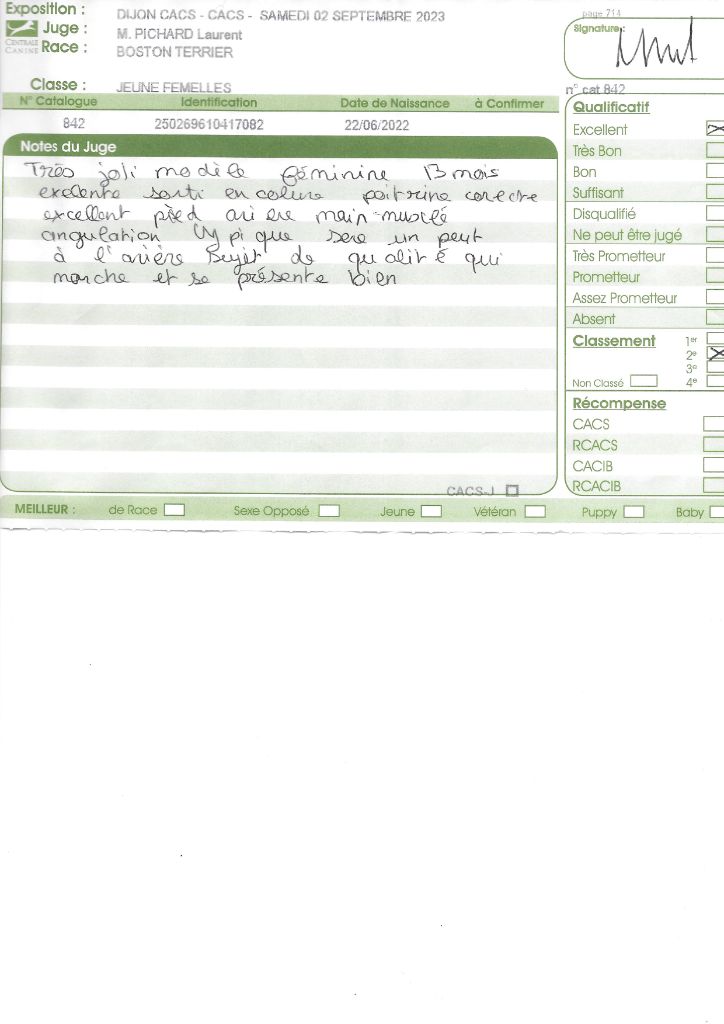 Exposition : DIJON CACS - CACS - SAMEDI 02 SEPTEMBRE 2023
Juge : M. PICHARD Laurent
Race : BOSTON TERRIER
CENTRALE CANINE
Classe : JEUNE FEMELLES
page 714
Signature :
n° cat 842
N° Catalogue Identification Date de Naissance à Confirmer
842 250269610417082 22/06/2022
Notes du Juge
Très joli modèle féminine 13 mois
exelente sorti encolure poitrine corecte
excellent pied ariere main musclé
angulation typique sere un peut
à l'arière sujet de qualité qui
marche et se présente bien
CACS-J
Qualificatif
Excellent
Très Bon
Bon
Suffisant
Disqualifié
Ne peut être jugé
Très Prometteur
Prometteur
Assez Prometteur
Absent
Classement 1er
2e
3e
Non Classé 4e
Récompense
CACS
RCACS
CACIB
RCACIB
MEILLEUR : de Race Sexe Opposé Jeune Vétéran Puppy Baby